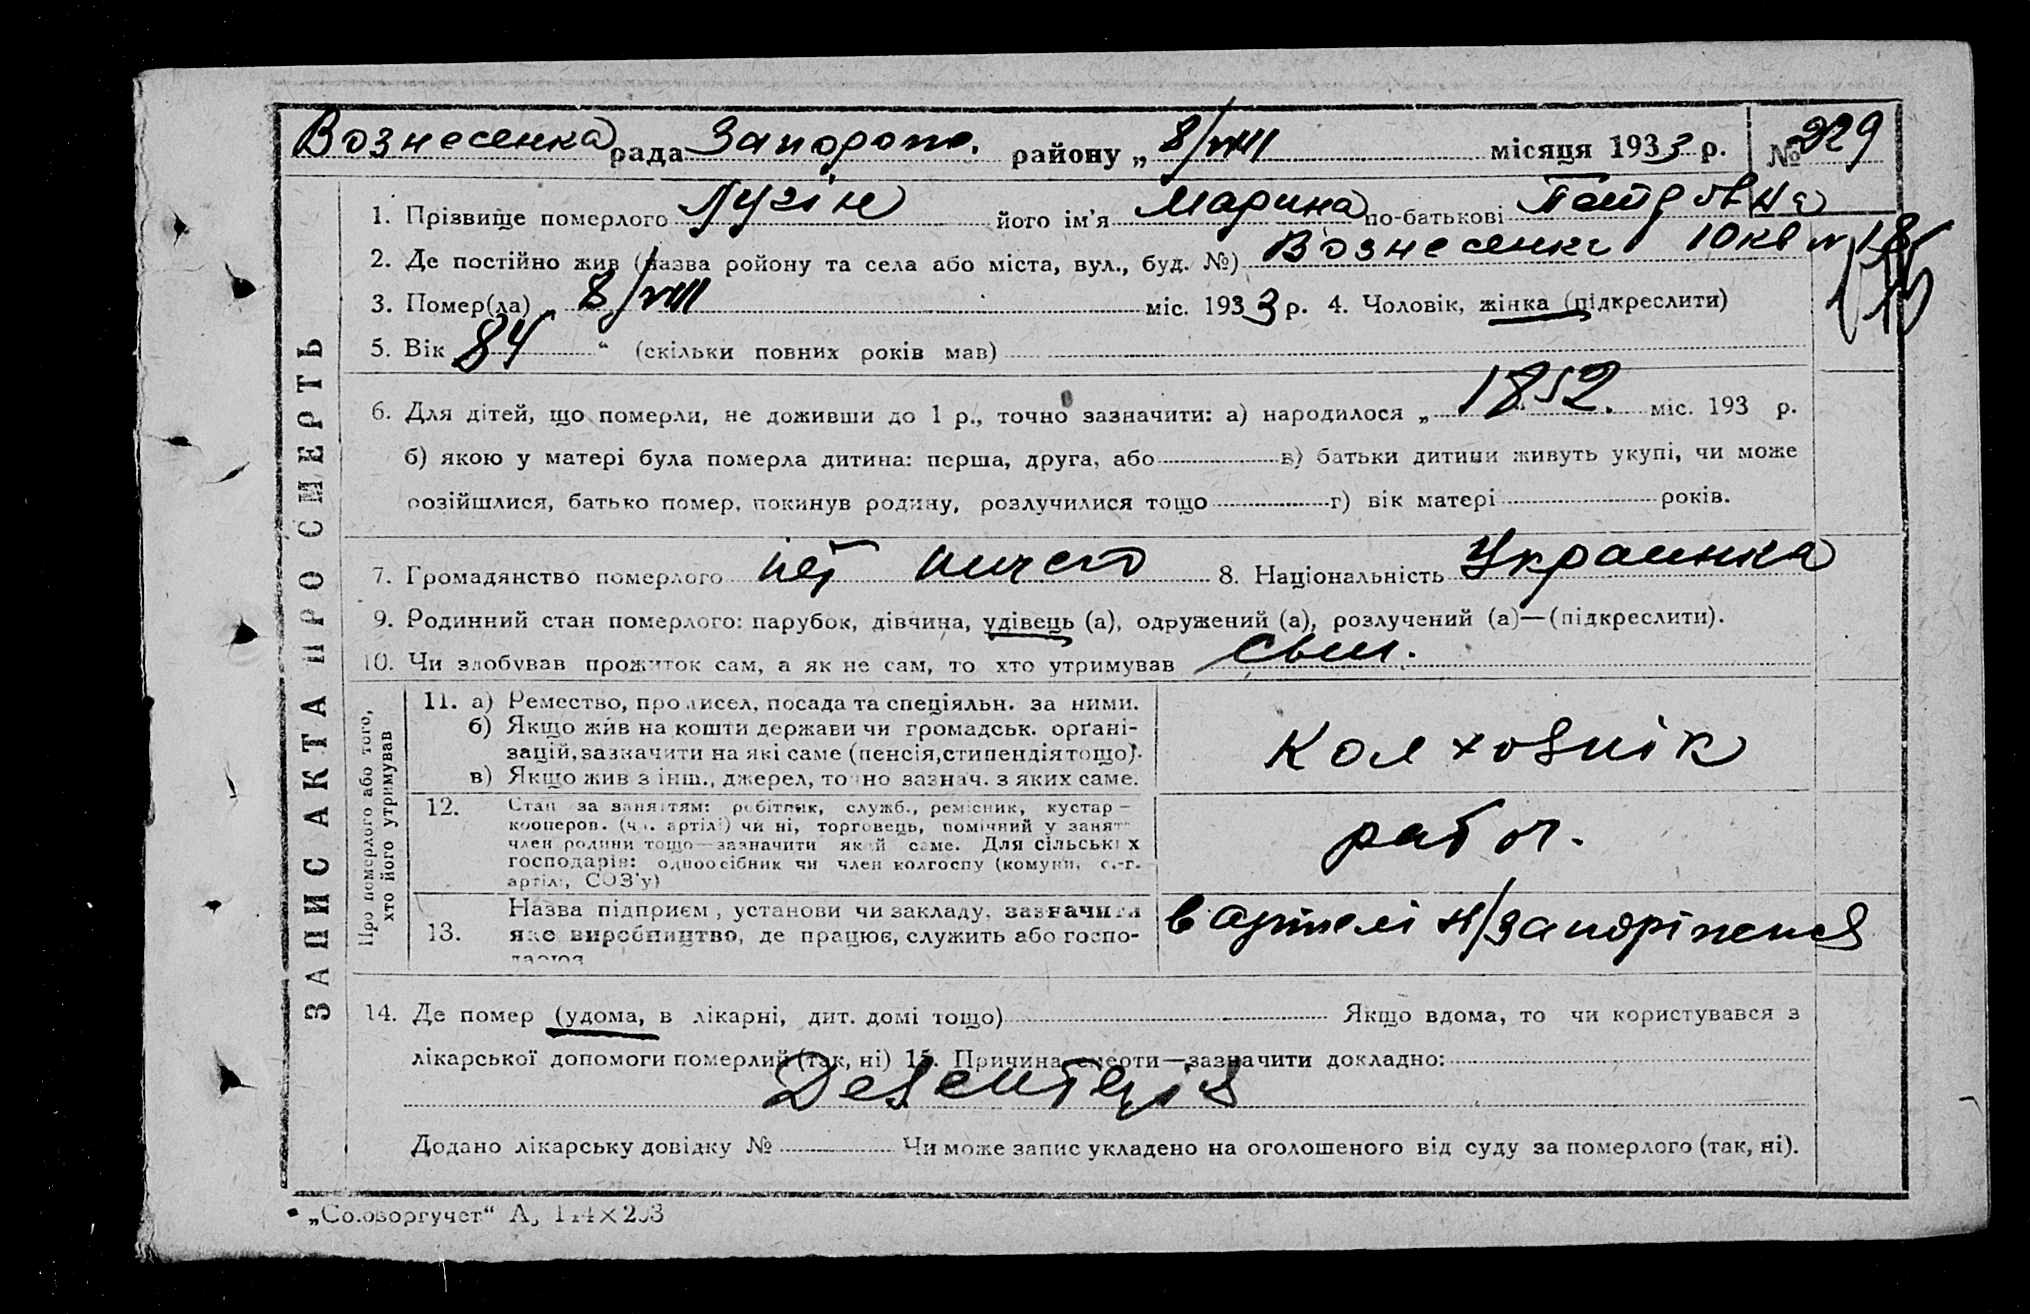 Вознесенка рада Запорож. району „ 8/VIII місяця 1933 р. № 229
1. Прізвище померлого Лузін його ім'я Марина по-батькові Петровна
2. Де постійно жив (назва ройону та села або міста, вул., буд. №) Вознесенка 10 кв № 18
3. Помер(ла) 8/VIII міс. 1933 р. 4. Чоловік, жінка (підкреслити)
5. Вік 84 “ (скільки повних років мав)
6. Для дітей, що померли, не доживши до 1 р., точно зазначити: а) народилося „ 1852. міс. 193 р.
б) якою у матері була померла дитина: перша, друга, або в) батьки дитини живуть укупі, чи може
розійшлися, батько помер, покинув родину, розлучилися тощо г) вік матері років.
7. Громадянство померлого 8. Національність Украинка
9. Родинний стан померлого: парубок, дівчина, удівець (а), одружений (а), розлучений (а)—(підкреслити).
10. Чи здобував прожиток сам, а як не сам, то хто утримував сын.
ЗАПИС АКТА ПРО СМЕРТЬ
Про померлого або того,
хто його утримував
11. а) Ремество, промисел, посада та спеціяльн. за ними.
б) Якщо жив на кошти держави чи громадськ. орґані-
зацій, зазначити на які саме (пенсія, стипендія тощо).
в) Якщо жив з інш., джерел, точно зазнач. з яких саме.
Колхозник
12. Стан за заняттям: робітник, служб., ремісник, кустар —
кооперов. (чл. артілі) чи ні, торговець, помічний у занят
член родини тощо—зазначити який саме. Для сільських
господарів: одноосібник чи член колгоспу (комуни, с.-г.
артілі, СОЗ'у)
работ.
13. Назва підприєм, установи чи закладу, зазначити
яке виробництво, де працює, служить або госпо-
дарює
в артелі Н/Запоріжжя
14. Де помер (удома, в лікарні, дит. домі тощо) Якщо вдома, то чи користувався з
лікарської допомоги померлий (так, ні) 15. Причина смерти—зазначити докладно:
Дезентерія
Додано лікарську довідку № Чи може запис укладено на оголошеного від суду за померлого (так, ні).